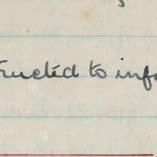 tructed to info